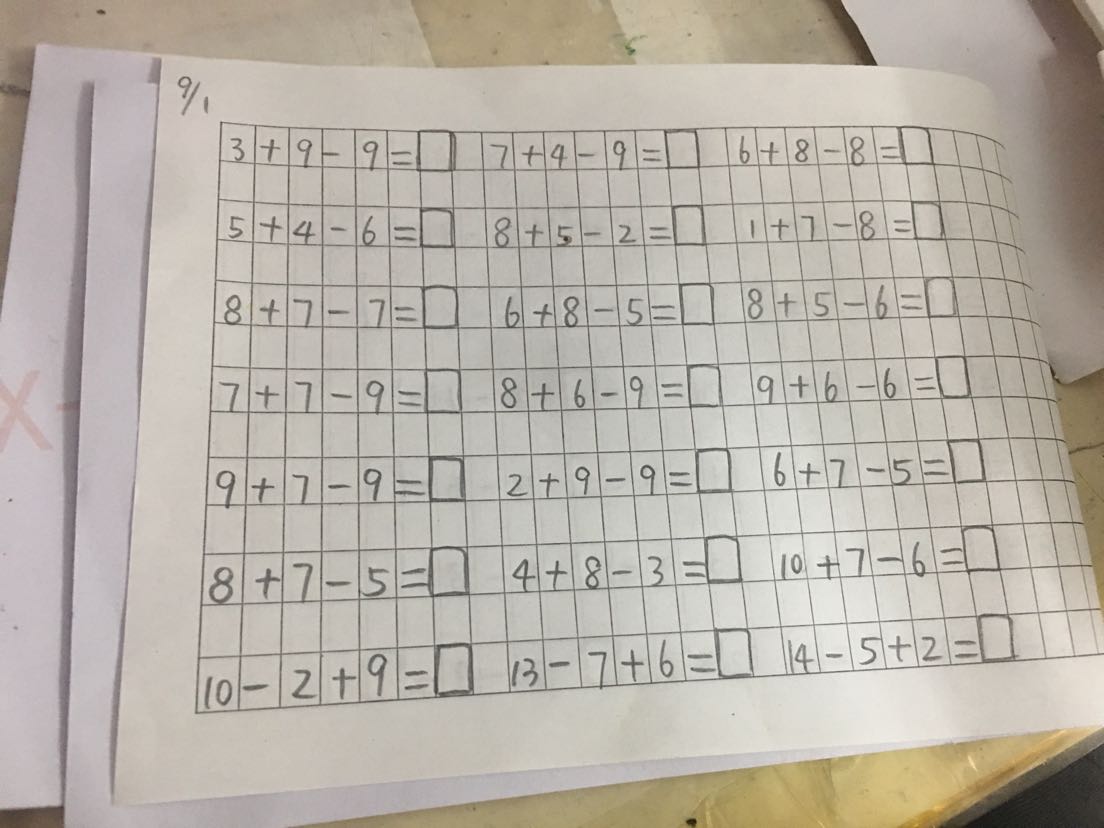 9/1
3+9-9=□ 7+4-9=□ 6+8-8=□
5+4-6=□ 8+5-2=□ 1+7-8=□
8+7-7=□ 6+8-5=□ 8+5-6=□
7+7-9=□ 8+6-9=□ 9+6-6=□
9+7-9=□ 2+9-9=□ 6+7-5=□
8+7-5=□ 4+8-3=□ 10+7-6=□
10-2+9=□ 13-7+6=□ 14-5+2=□